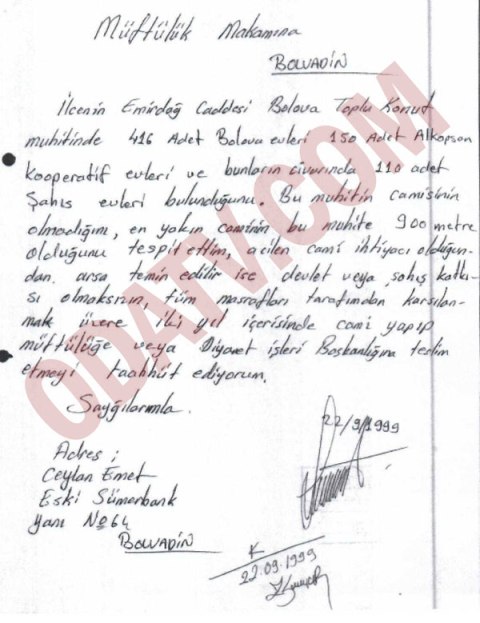 Müftülük Makamına
BOLVADİN
İlcenin Emirdağ Caddesi Bolova Toplu Konut
muhitinde 416 Adet Bolova evleri 150 Adet Alkopson
kooperatif evleri ve bunların civarında 110 adet
Şahıs evleri bulunduğunu. Bu muhitin camisinin
olmadığını, en yakın caminin bu muhite 900 metre
olduğunu tespit ettim, acilen cami ihtiyacı olduğun-
dan. arsa temin edilir ise devlet veya şahıs katkı-
sı olmaksızın, tüm masrafları tarafımdan karşılan-
mak üzere iki yıl içerisinde cami yapıp
müftülüğe veya Diyanet işleri Başkanlığına teslim
etmeyi taahhüt ediyorum.
Sayğılarımla.
22/9/1999
Adres ;
Ceylan Emet
Eski Sümerbank
Yanı No 64
BOLVADİN
K
22.09.1999
ODATV.COM